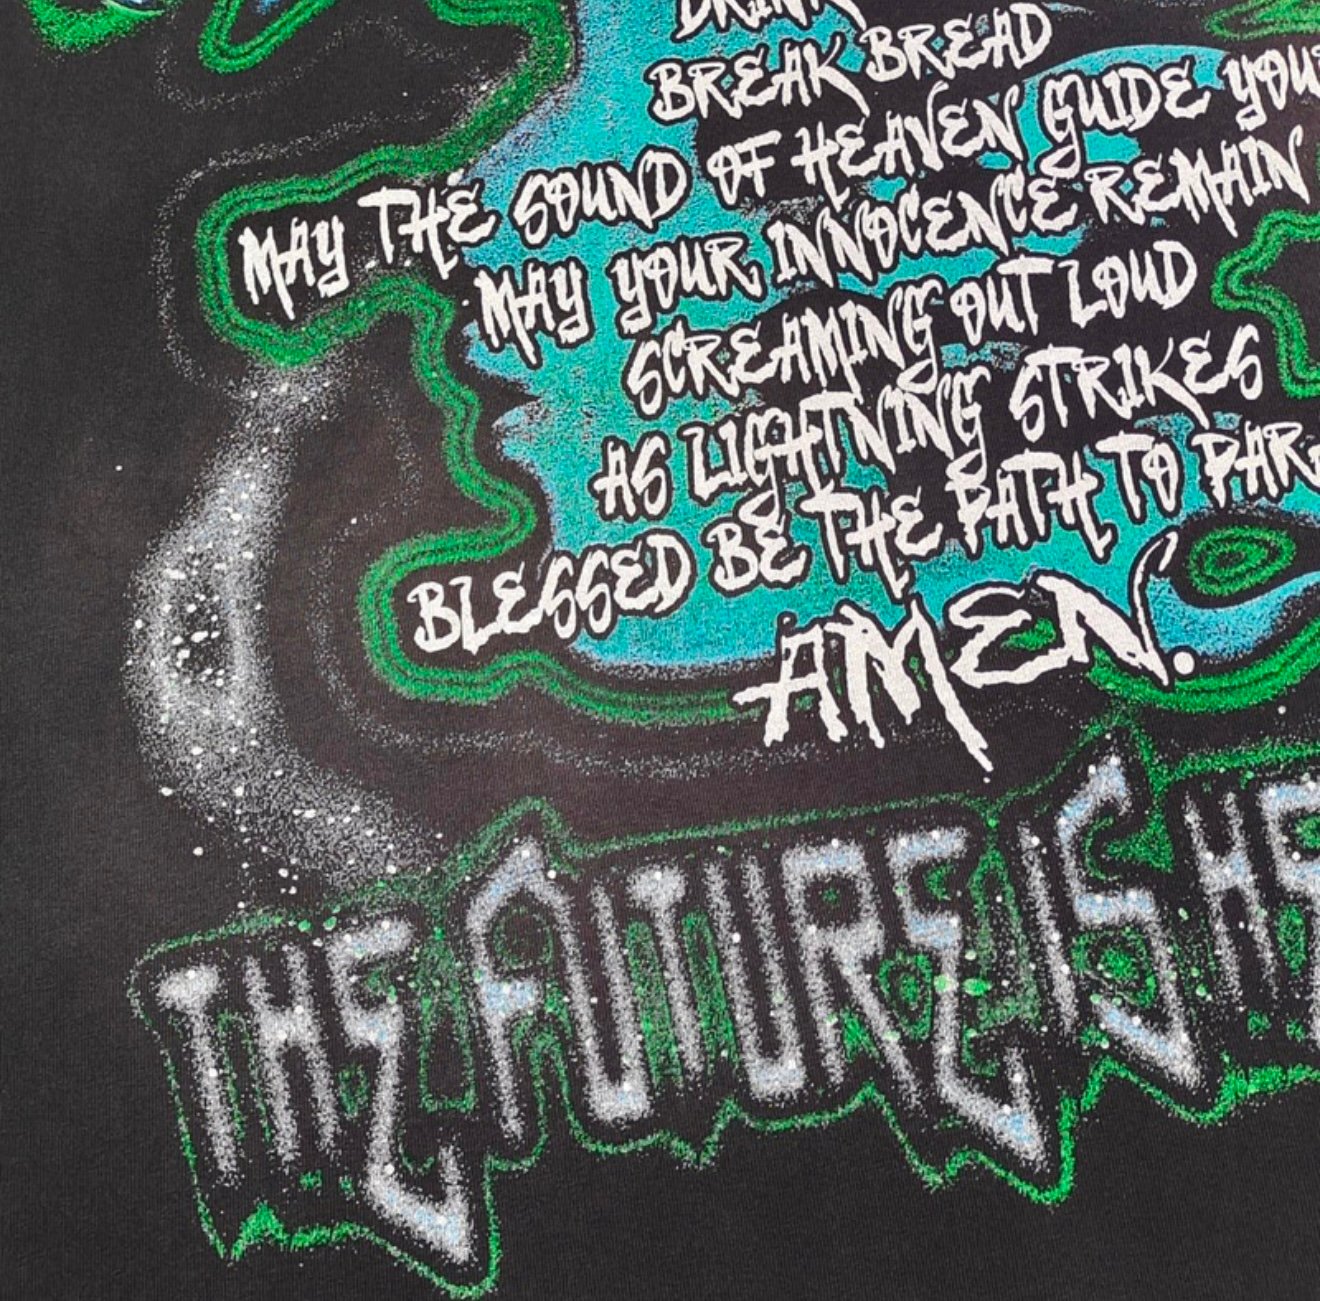 DRINK
BREAK BREAD
MAY THE SOUND OF HEAVEN GUIDE YOU
MAY YOUR INNOCENCE REMAIN
SCREAMING OUT LOUD
AS LIGHTNING STRIKES
BLESSED BE THE PATH TO PAR
AMEN.
THE FUTURE IS HE